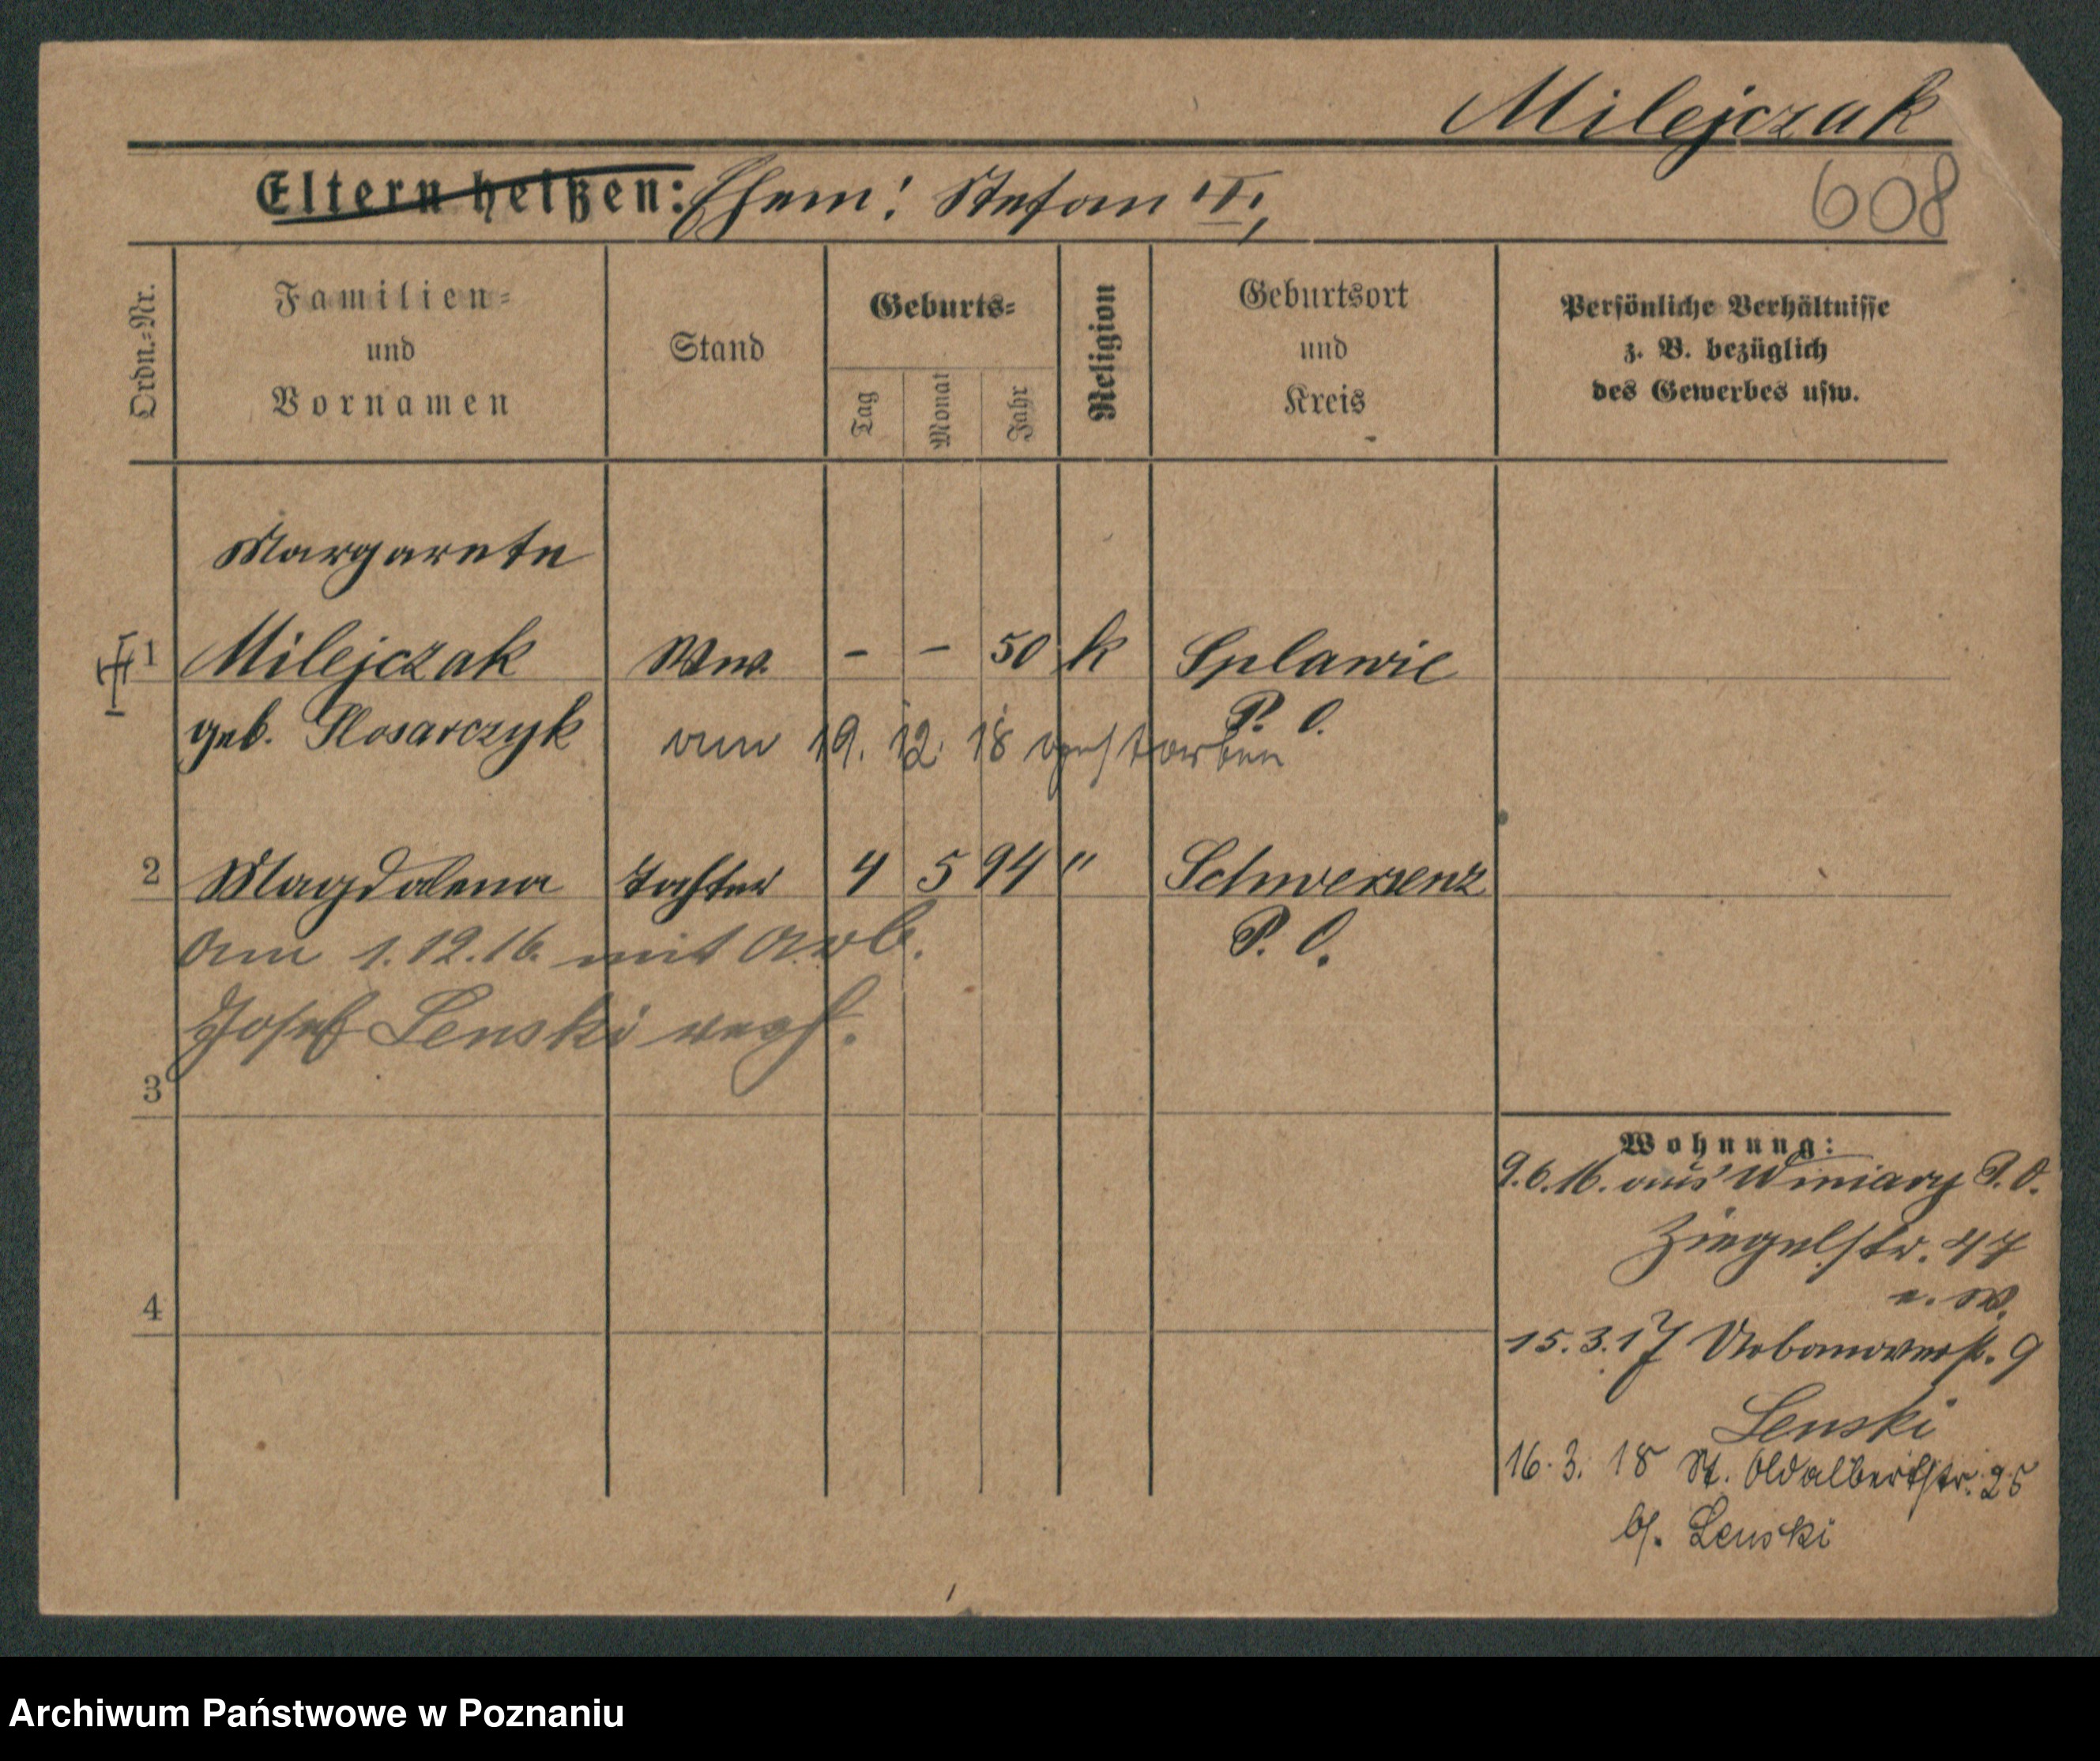 Milejczak
608
Eltern heißen: Ehem: Stefan
Ordn.=Nr.
Familien=
und
Vornamen
Stand
Geburts=
Tag
Monat
Jahr
Religion
Geburtsort
und
Kreis
Persönliche Verhältnisse
z. B. bezüglich
des Gewerbes usw.
Margarete
1 Milejczak Ww. – – 50 k Splawie
geb. Slosarczyk P. O.
am 19. 12. 18 gestorben
2 Magdalena Tochter 4 5 94 " Schwersenz
P. O.
am 1.12.16. mit Arb.
Josef Lenski verh.
3
4
Wohnung:
9.6.16. aus Winiary P. O.
Ziegelstr. 47
15.3.17 9
Lenski
16. 3. 18 St. 25
b/. Lenski
Archiwum Państwowe w Poznaniu